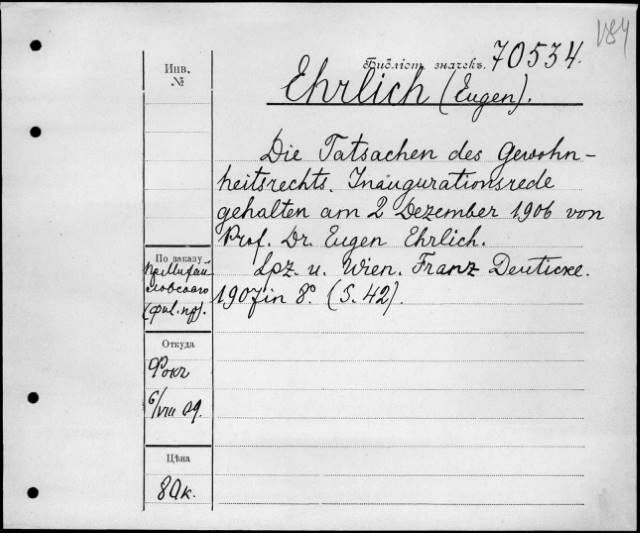 V84
Библіот. значекъ. 70534.
Инв.
№
Ehrlich (Eugen).
Die Tatsachen des Gewohn-
heitsrechts. Inaugurationsrede
gehalten am 2 Dezember 1906 von
Prof. Dr. Eugen Ehrlich.
Lpz. u. Wien. Franz Deuticke.
1907 in 8°. (S. 42).
По заказу
пр. Михай
ловскаго
Откуда
Фокъ
6/VIII 09.
Цѣна
80к.